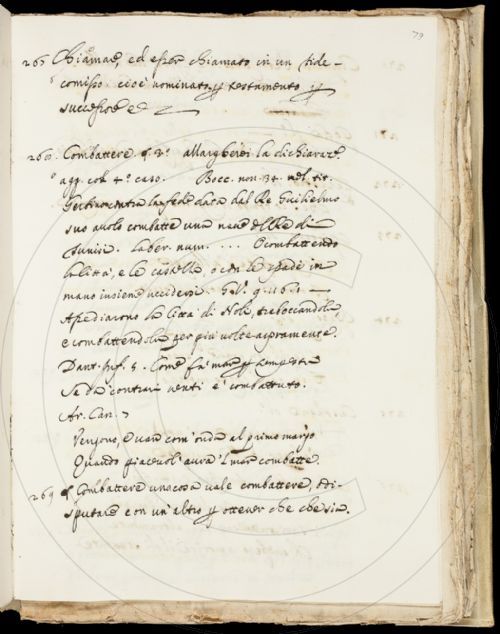 79
265 Chiamare, ed esser chiamato in un fide-
comisso cioè nominato p testamento p
successore e
260 Combattere q. 3° allargherei la dichiaraz.
agg. col 4° caso. Bocc. nov. 34. nel tit.
Gerbino contra la fede data dal Re Guilielmo
suo avolo combatte una nave del Re di
Tunisi. Laber. num. ... O combattendo
la Città, e le castella, o con le spade in
mano insieme uccidersi. G. V. 9. 116.1
Assediarono la Città di Noli, traboccandola,
e combattendola per più volte aspramente.
Dant. Inf. 5. Come fa mar p tempesta
Se da contrari venti è combattuto.
Ar. Can. 7
Vengono, e van com' onda al primo margo
Quando piacevol' aura 'l mar combatte.
269 Combattere una cosa vale combattere, e di-
sputare con un' altro p ottener che che sia.